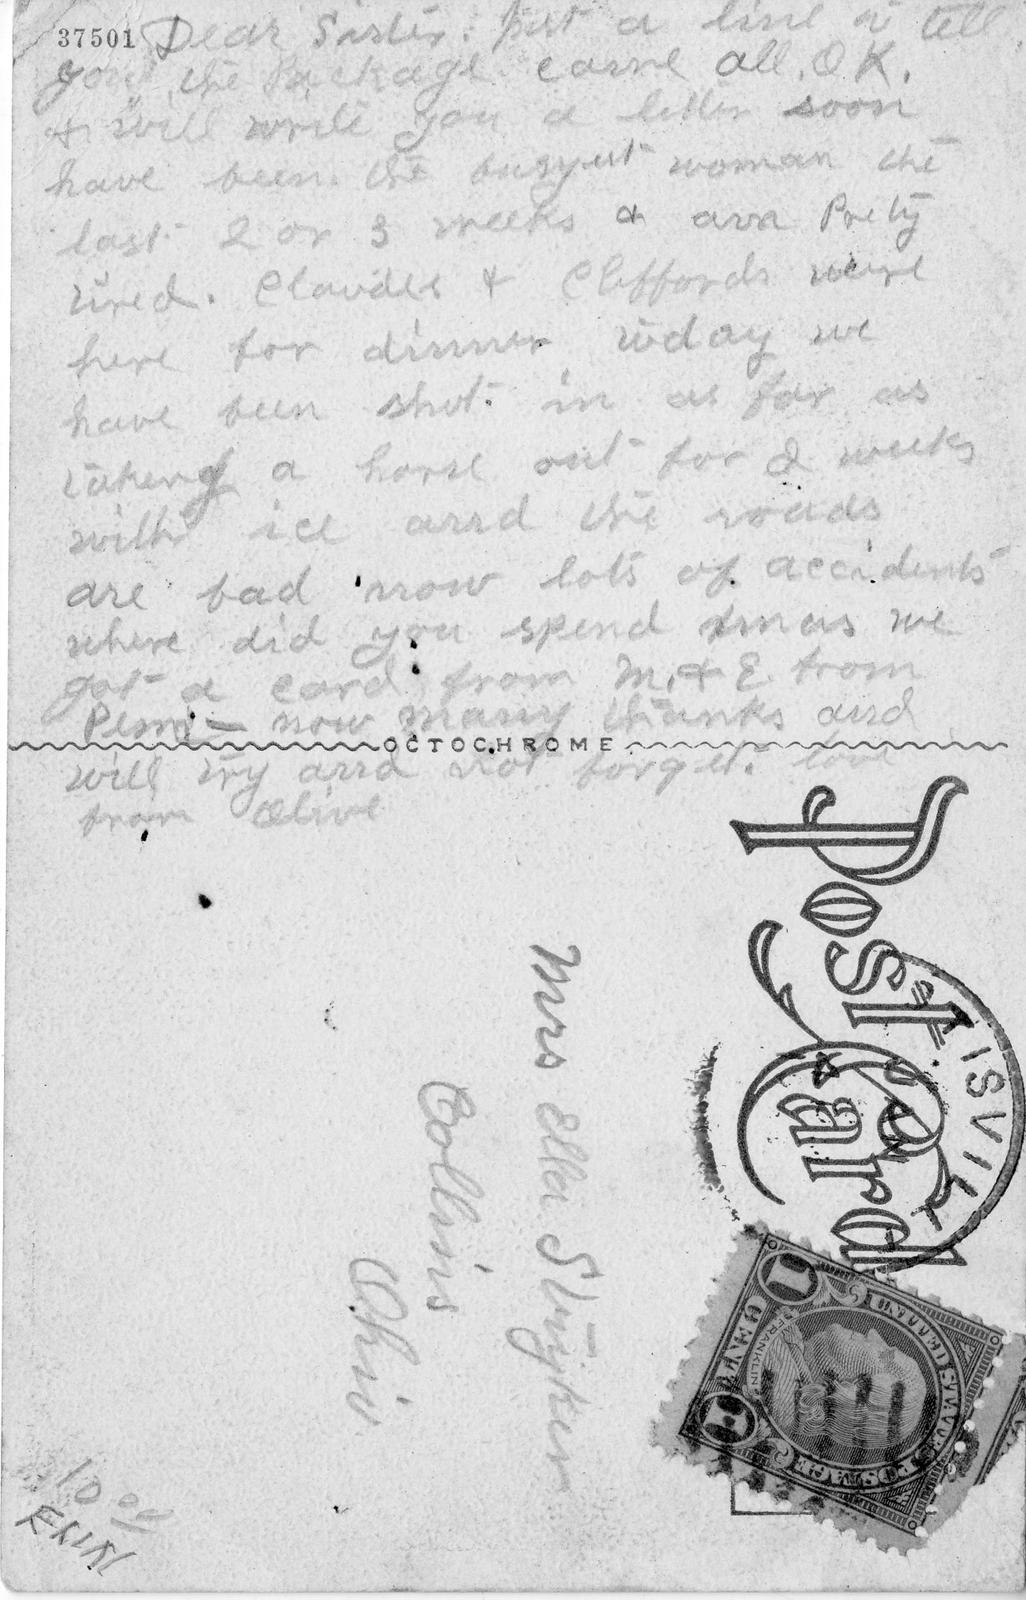 37501
Dear Sister. Just a line to tell
you the Package came all. O K.
& will write you a letter soon
have been the busyest woman the
last 2 or 3 weeks & am Prety
tired. Claudes & Cliffords were
here for dinner today we
have been shut in as far as
taking a horse out for 2 weeks
with ice and the roads
are bad now lots of accidents
where did you spend Xmas we
got a card from M. & E from
now many thanks and
OCTOCHROME
will try and not forget. love
from Olive
Post Card
ISVIL
Mrs Ella
Collins
Ohio
UNITED STATES POSTAGE
FRANKLIN
1 CENT 1
10